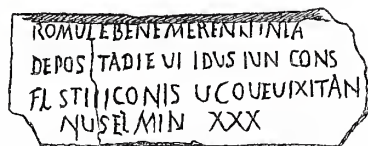 ROMULEBENEMERENNINIA
DEPOSTADIE VI IDUS IUN CONS
FL STILICONIS UCOUEUIXITAN
NUSELMIN XXX